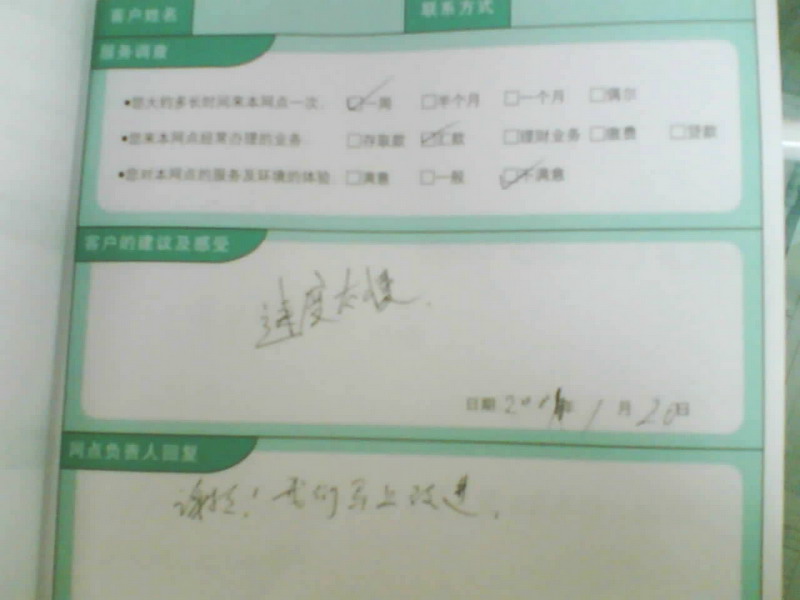 客户姓名 联系方式
服务调查
•您大约多长时间来本网点一次: □一周 □半个月 □一个月 □偶尔
•您来本网点经常办理的业务: □存取款 □汇款 □理财业务 □缴费 □贷款
•您对本网点的服务及环境的体验: □满意 □一般 □不满意
客户的建议及感受
速度太慢.
日期 年 1 月 20 日
网点负责人回复
谢谢! 我们马上改进.